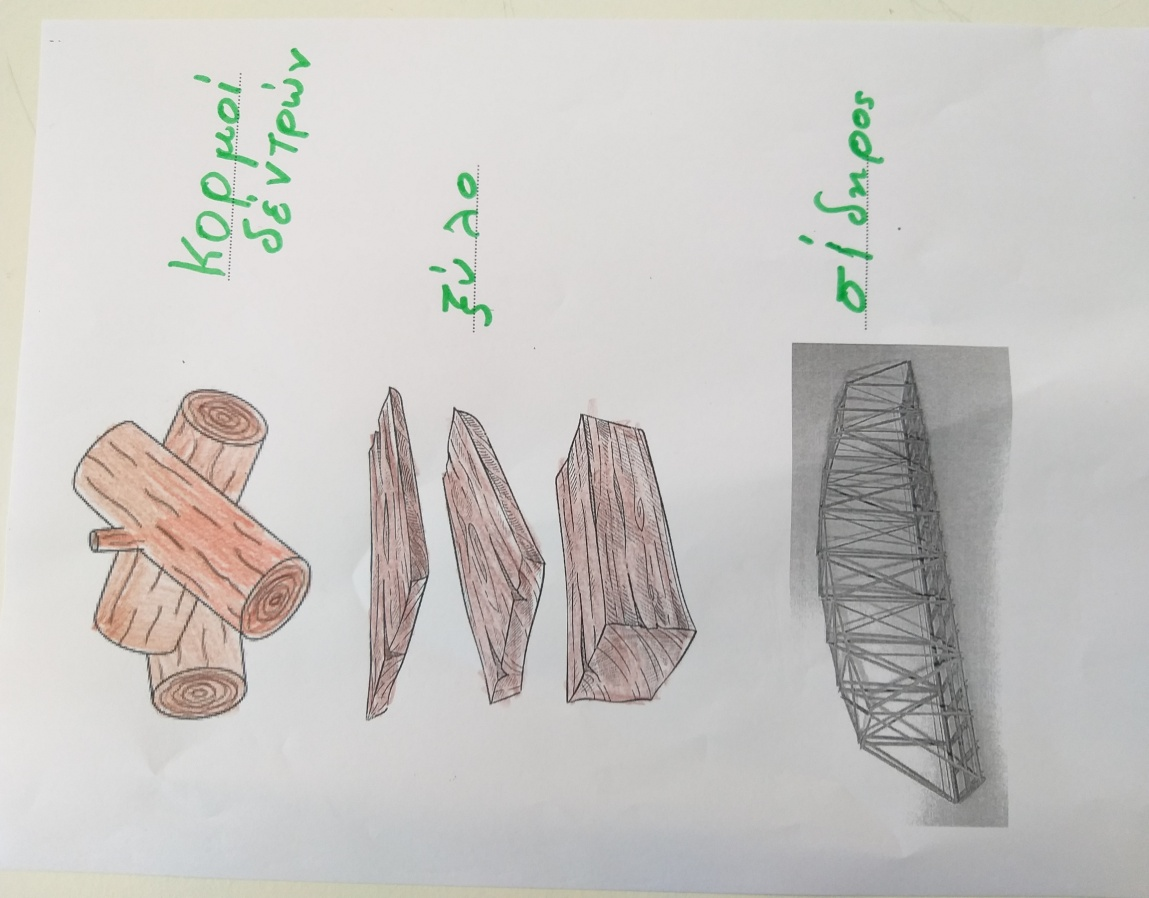 κορμοί
δέντρών
ξύλο
σίδηρος